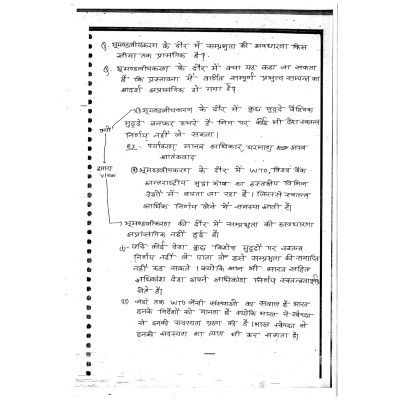 Q. भूमण्डलीयकरण के दौर में सम्प्रभुता की अवधारणा किस
सीमा तक प्रासंगिक है?
Q. भूमण्डलीयकरण के दौर में क्या यह कहा जा सकता
है कि प्रस्तावना में वर्णित सम्पूर्ण प्रभुत्व सम्पन्न का
आदर्श अप्रासंगिक हो गया है?
भूमण्डलीयकरण के दौर में कुछ मुद्दे वैश्विक
मुद्दे बनकर उभरे हैं जिन पर कोई भी देश स्वतन्त्र
निर्णय नहीं ले सकता।
Ex- पर्यावरण मानव अधिकार, परमाणु अस्त्र
आतंकवाद
भूमण्डलीयकरण के दौर में WTO, विश्व बैंक
अन्तर्राष्ट्रीय मुद्रा कोष का हस्तक्षेप विभिन्न
देशों में बढ़ता जा रहा है। जिससे स्वतन्त्र
आर्थिक निर्णय लेने में समस्या आती है।
क्यों
हमारा
view
भूमण्डलीयकरण की दौर में सम्प्रभुता की अवधारणा
अप्रासंगिक नहीं हुई है।
यदि कोई देश कुछ विशेष मुद्दों पर स्वतन्त्र
निर्णय नहीं ले पाता तो इसे सम्प्रभुता की समाप्ति
नहीं कह सकते। क्योंकि आज भी भारत सहित
अधिकांश देश अपने अधिकांश निर्णय स्वतन्त्रता से
लेते हैं।
जहां तक WTO जैसी संस्थाओं का सवाल है भारत
इनके निर्देशों को मानता है क्योंकि भारत ने स्वेच्छा
से इनकी सदस्यता ग्रहण की है। भारत स्वेच्छा से
इनकी सदस्यता का त्याग भी कर सकता है।